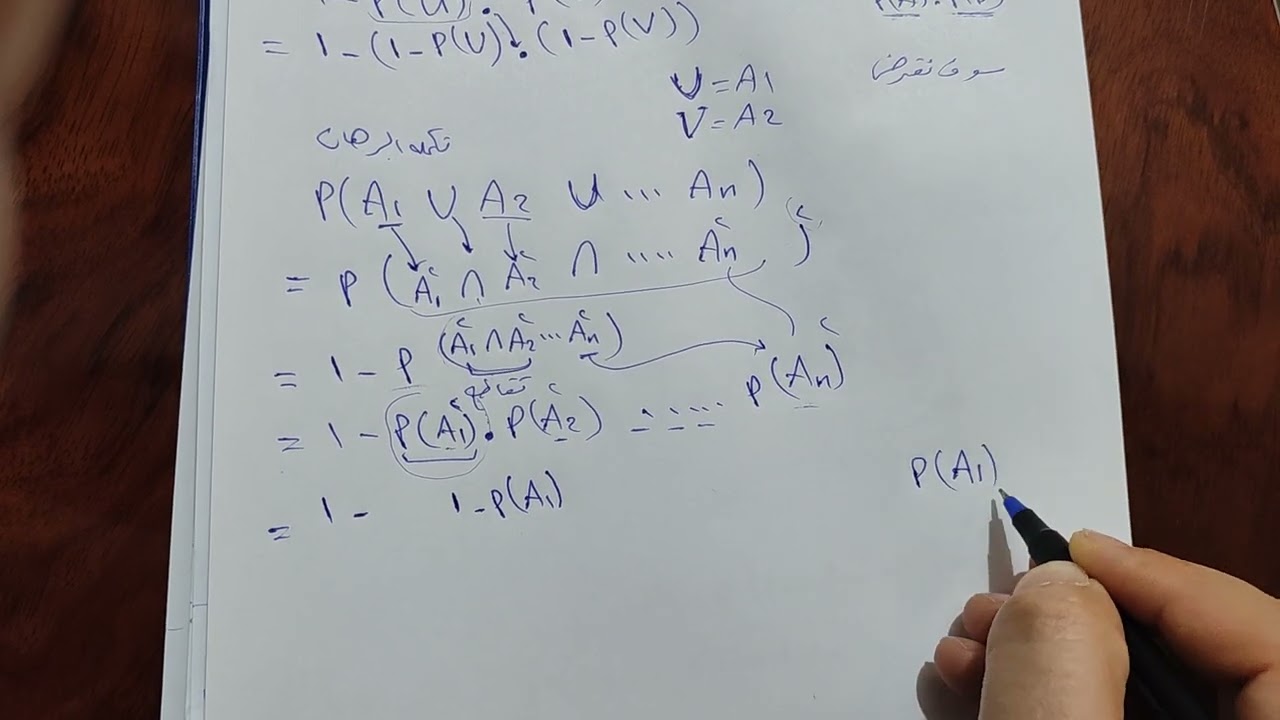 = 1 - (1-P(U)) . (1-P(V))
سوف نفرض
U = A1
V = A2
تكملة البرهان
P(A1 ∪ A2 ∪ ... An)
= P (A1ᶜ ∩ A2ᶜ ∩ .... Anᶜ)ᶜ
= 1 - P (A1ᶜ ∩ A2ᶜ ... Anᶜ)
تقاطع
= 1 - P(A1ᶜ) . P(A2ᶜ) ....... P(An)ᶜ
P(A1)
= 1 - 1-P(A1)